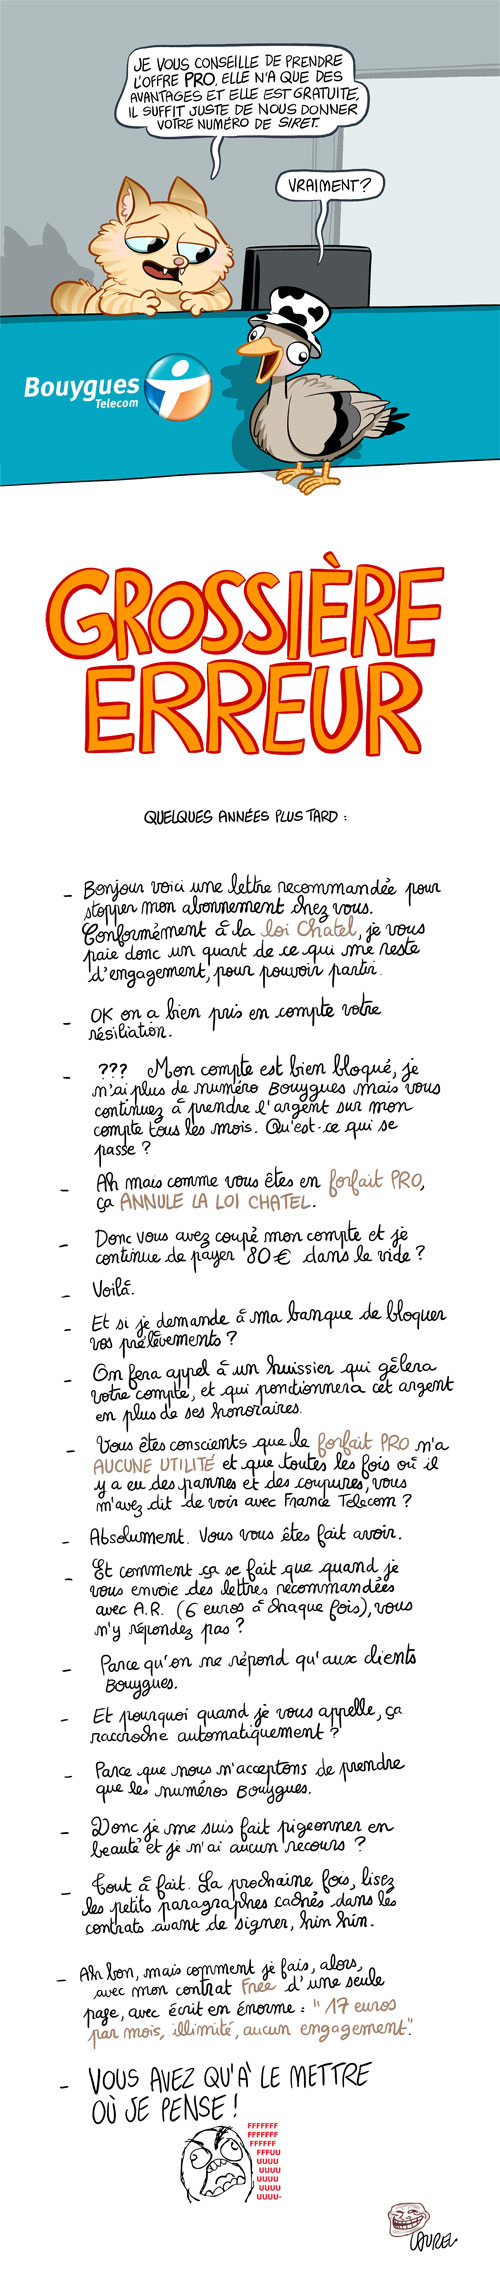 JE VOUS CONSEILLE DE PRENDRE
L'OFFRE PRO, ELLE N'A QUE DES
AVANTAGES ET ELLE EST GRATUITE,
IL SUFFIT JUSTE DE NOUS DONNER
VOTRE NUMÉRO DE SIRET.
VRAIMENT?
Bouygues
Telecom
GROSSIÈRE
ERREUR
QUELQUES ANNÉES PLUS TARD :
- Bonjour voici une lettre recommandée pour
stopper mon abonnement chez vous.
Conformément à la loi Chatel, je vous
paie donc un quart de ce qui me reste
d'engagement, pour pouvoir partir.
- OK on a bien pris en compte votre
résiliation.
- ??? Mon compte est bien bloqué, je
n'ai plus de numéro Bouygues mais vous
continuez à prendre l'argent sur mon
compte tous les mois. Qu'est-ce qui se
passe ?
- Ah mais comme vous êtes en forfait PRO,
ça ANNULE LA LOI CHATEL.
- Donc vous avez coupé mon compte et je
continue de payer 80€ dans le vide ?
- Voilà.
- Et si je demande à ma banque de bloquer
vos prélèvements ?
- On fera appel à un huissier qui gèlera
votre compte, et qui ponctionnera cet argent
en plus de ses honoraires.
- Vous êtes conscients que le forfait PRO n'a
AUCUNE UTILITÉ et que toutes les fois où il
y a eu des pannes et des coupures, vous
m'avez dit de voir avec France Telecom ?
- Absolument. Vous vous êtes fait avoir.
- Et comment ça se fait que quand je
vous envoie des lettres recommandées
avec A.R. (6 euros à chaque fois), vous
n'y répondez pas ?
- Parce qu'on ne répond qu'aux clients
Bouygues.
- Et pourquoi quand je vous appelle, ça
raccroche automatiquement ?
- Parce que nous n'acceptons de prendre
que les numéros Bouygues.
- Donc je me suis fait pigeonner en
beauté et je n'ai aucun recours ?
- Tout à fait. La prochaine fois, lisez
les petits paragraphes cachés dans les
contrats avant de signer, hin hin.
- Ah bon, mais comment je fais, alors,
avec mon contrat Free d'une seule
page, avec écrit en énorme : "17 euros
par mois, illimité, aucun engagement".
- VOUS AVEZ QU'À LE METTRE
OÙ JE PENSE !
FFFFFFF
FFFFFFF
FFFFFF
FFFUU
UUUU
UUUU
UUUU
UUUU
UUUU-
LAUREL